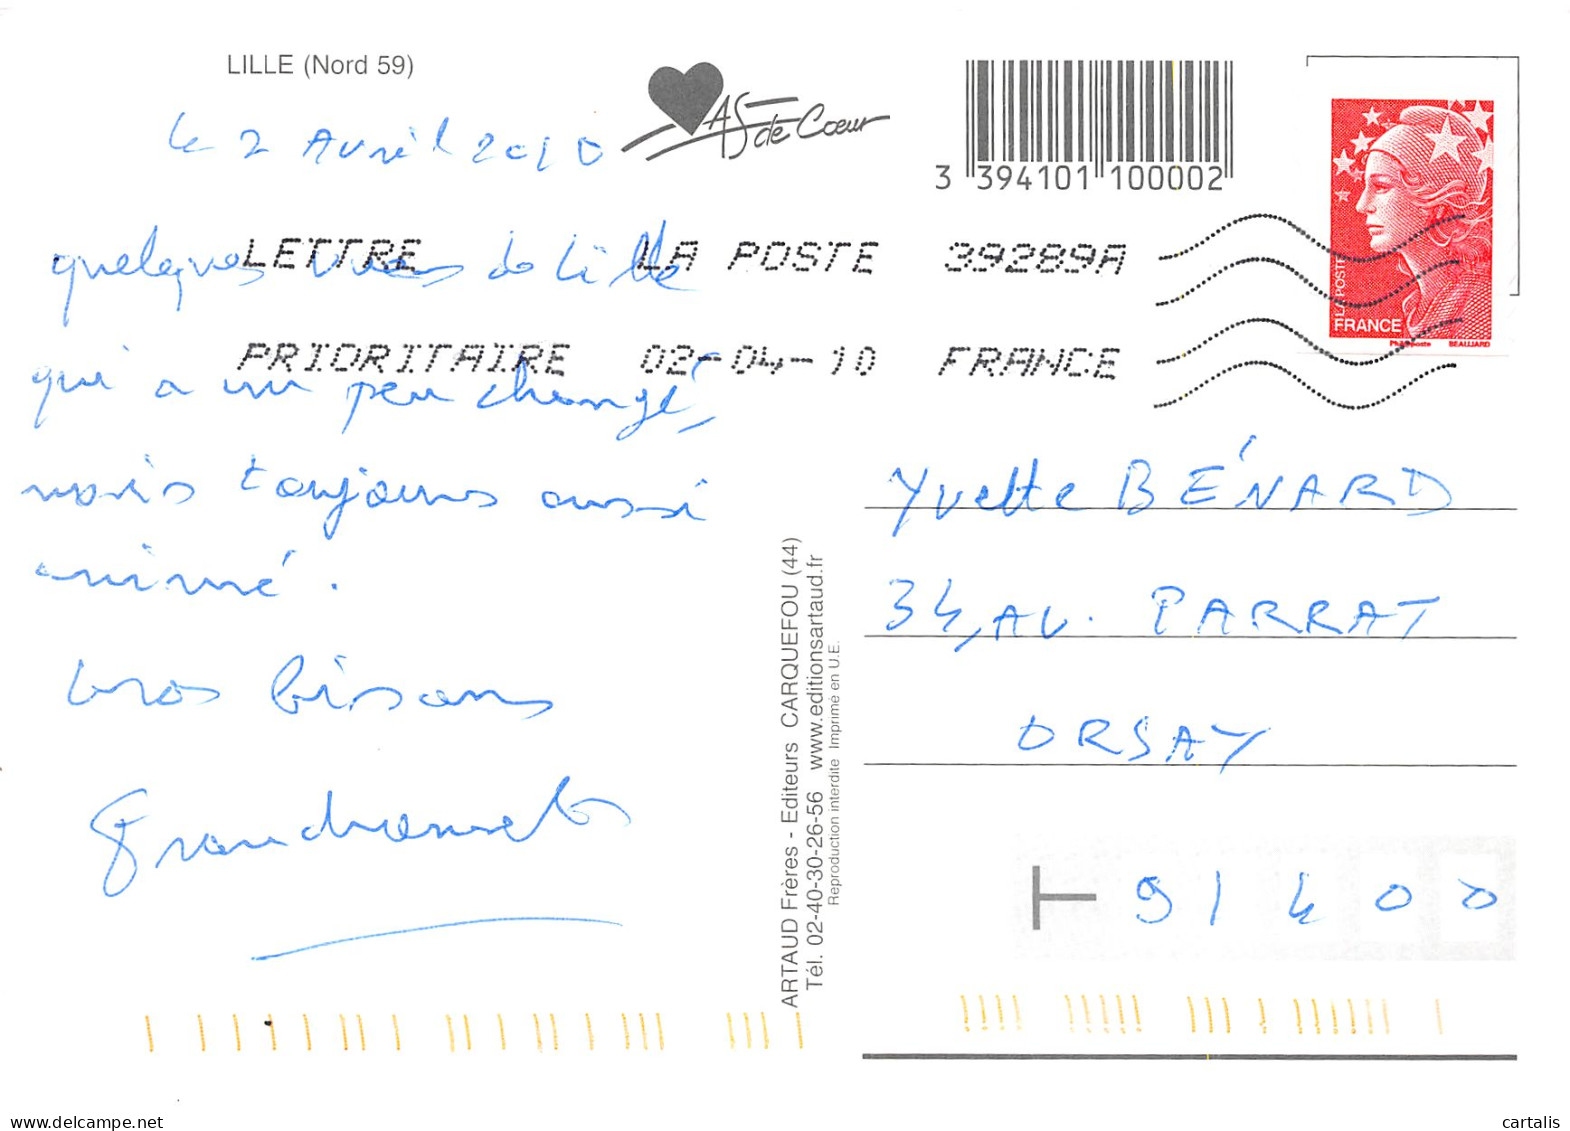 LILLE (Nord 59)
AS de Cœur
3 394101 100002
le 2 Avril 2010
quelques vues de Lille
qui a un peu changé,
mais toujours aussi
animé.
Gros bisous
LETTRE LA POSTE 39289A
PRIORITAIRE 02-04-10 FRANCE
LA POSTE
FRANCE
BEAUJARD
Yvette BÉNARD
34, AV. PARRAT
ORSAY
91400
ARTAUD Frères - Editeurs CARQUEFOU (44)
Tél. 02-40-30-26-56 www.editionsartaud.fr
Reproduction interdite Imprimé en U.E.
cartalis